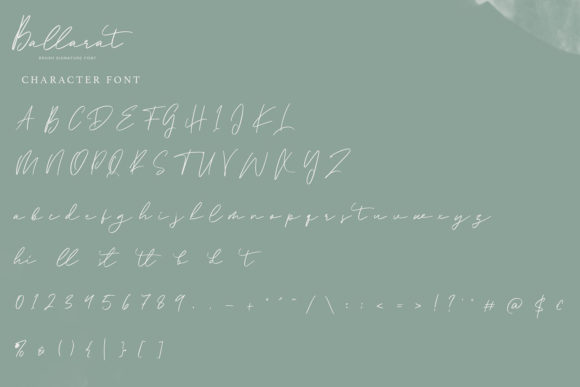 Ballarat
BRUSH SIGNATURE FONT
CHARACTER FONT
A B C D E F G H I J K L
M N O P Q R S T U V W X Y Z
a b c d e f g h i j k l m n o p q r s t u v w x y z
hi ll st tt
0 1 2 3 4 5 6 7 8 9 . . - + / \ : ; < = > ! ? # @ $ c
% ( ) { | } [ ]